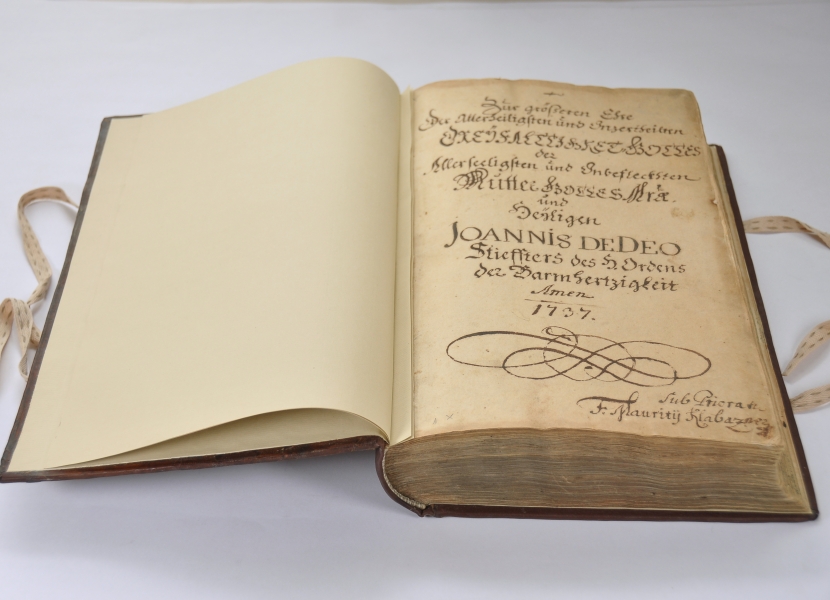 Zur grösseren Ehre
Der Allerheiligsten und Unzertheilten
DREYFALTIGKEIT GOTTES
der
Allerseeligsten und Unbefleckten
Mutter GOTTES Mariæ
und
Heyligen
JOANNIS DEDEO
Stieffters des H Ordens
der Barmhertzigkeit
Amen
1737.
Sub Priorat
F. Mauritij